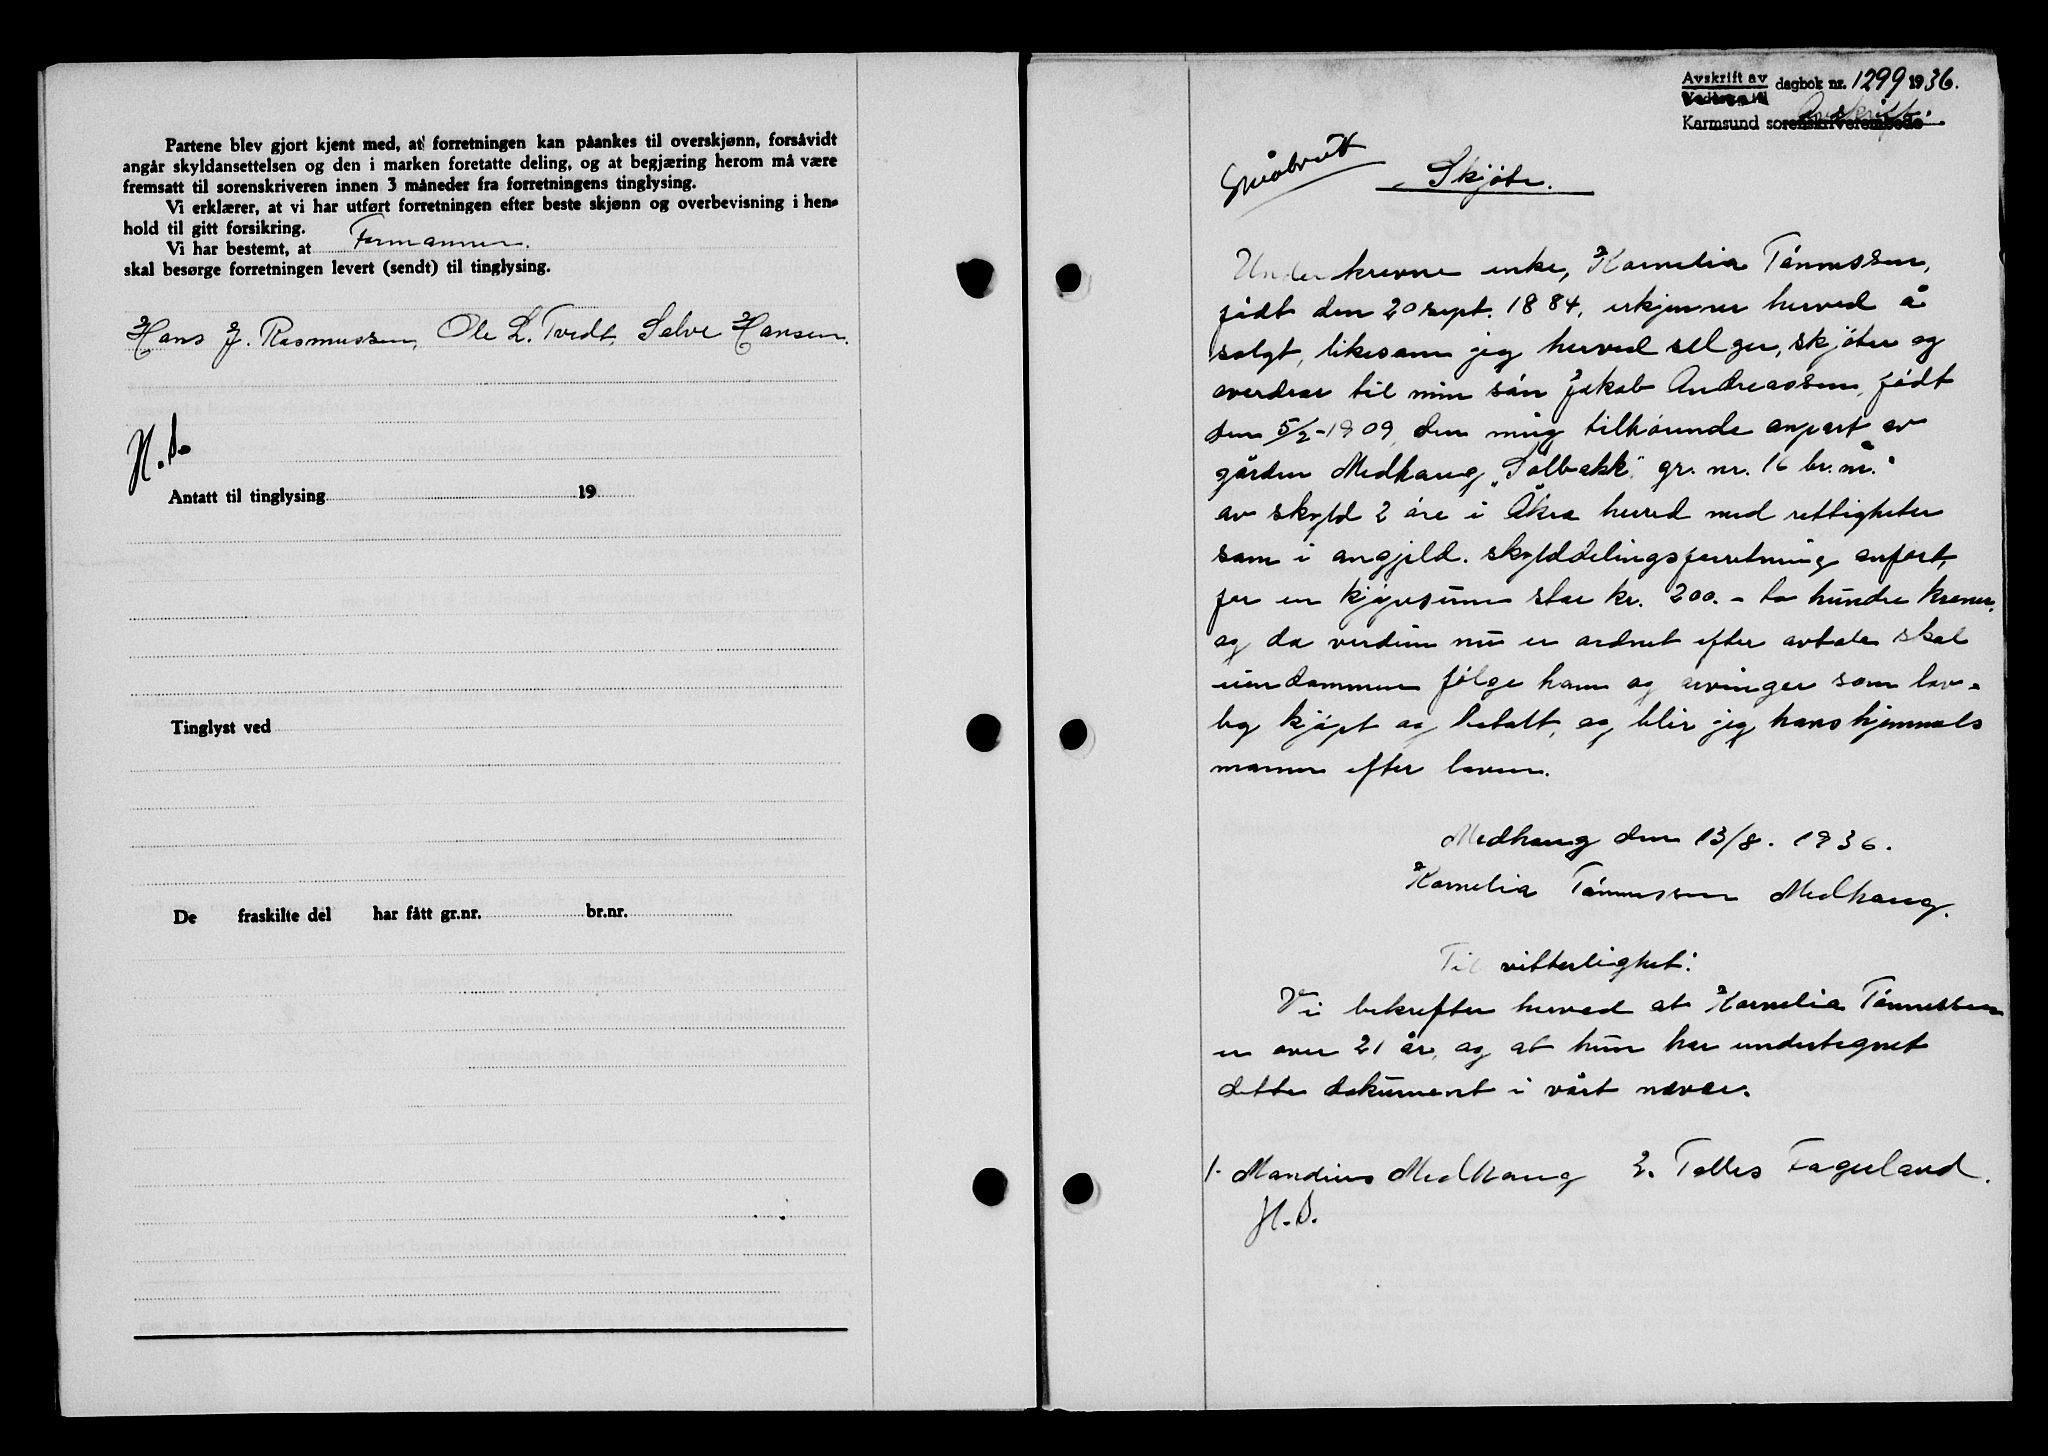 Partene blev gjort kjent med, at forretningen kan påankes til overskjønn, forsåvidt
angår skyldansettelsen og den i marken foretatte deling, og at begjæring herom må være
fremsatt til sorenskriveren innen 3 måneder fra forretningens tinglysing.
Vi erklærer, at vi har utført forretningen efter beste skjønn og overbevisning i hen-
hold til gitt forsikring.
Vi har bestemt, at Formannen.
skal besørge forretningen levert (sendt) til tinglysing.
Hans J. Rasmussen, Ole L. Tvedt, Salve Hansen.
H.D.
Antatt til tinglysing 19
Tinglyst ved
De fraskilte del har fått gr.nr. br.nr.
Avskrift av dagbok nr. 1299 1936.
Karmsund sorenskriverembede
Skjøte.
Underskrevne enke, Kornelia Tønnessen,
født den 20 sept. 1884, erkjenner herved å
solgt, likesom jeg herved selger, skjøter og
overdrar til min søn Jakob Andreassen, født
den 5/2-1909, den mig tilhørende anpart av
gården Medhaug "Solbakk" gr. nr. 16 br. nr.
av skyld 2 øre i Åkra herred med rettigheter
som i angjeld. skylddelingsforretning anført,
for en kjøpesum stor kr. 200.- to hundre kroner,
og da verdien nu er ordnet efter avtale skal
eiendommen følge ham og arvinger som lov-
lig kjøpt og betalt, og blir jeg hans hjemmels
mann efter loven.
Medhaug den 13/8. 1936.
Kornelia Tønnessen Medhaug.
Til vitterlighet:
Vi bekrefter herved at Kornelia Tønnessen
er over 21 år, og at hun har undertegnet
dette dokument i vårt nærvær.
1. Mandius Medhaug 2. Tolles Fagerland.
H.D.